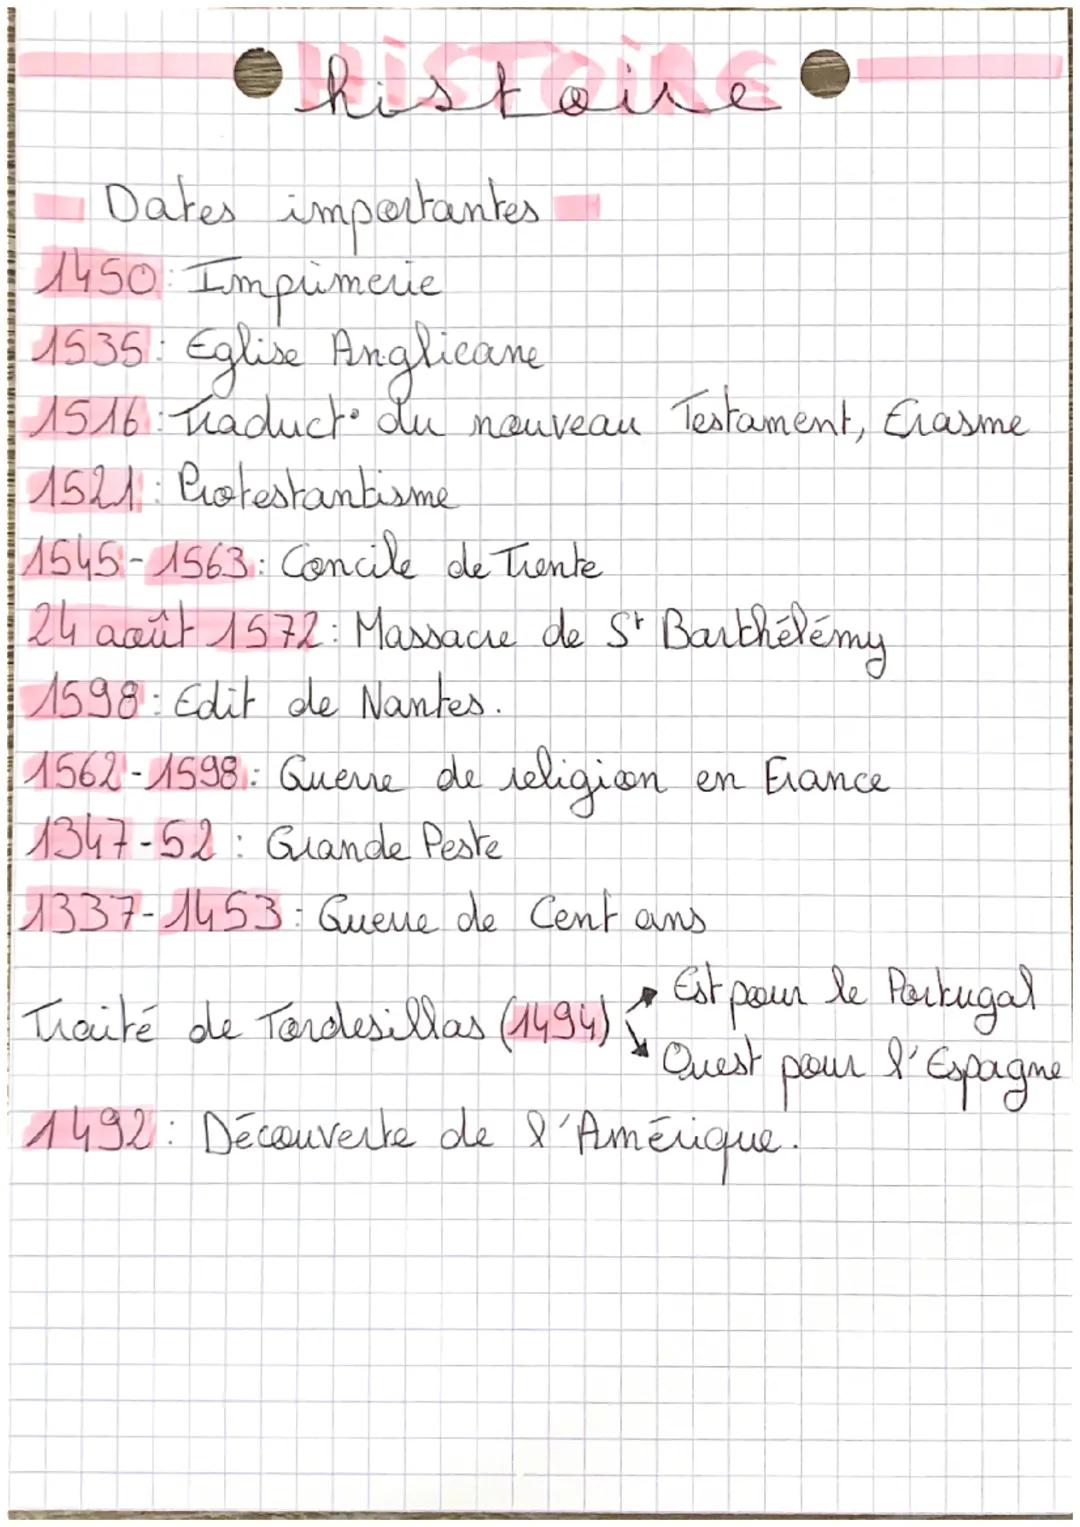 HISTOIRE
histoire
Dates importantes
1450 : Imprimerie
1535 : Eglise Anglicane
1516 : Traduct° du nouveau Testament, Erasme
1521 : Protestantisme
1545-1563 : Concile de Trente
24 août 1572 : Massacre de St Barthélémy
1598 : Edit de Nantes.
1562-1598 : Guerre de religion en France
1347-52 : Grande Peste
1337-1453 : Guerre de Cent ans
Traité de Tordesillas (1494) → Est pour le Portugal
→ Ouest pour l'Espagne
1492 : Découverte de l'Amérique.